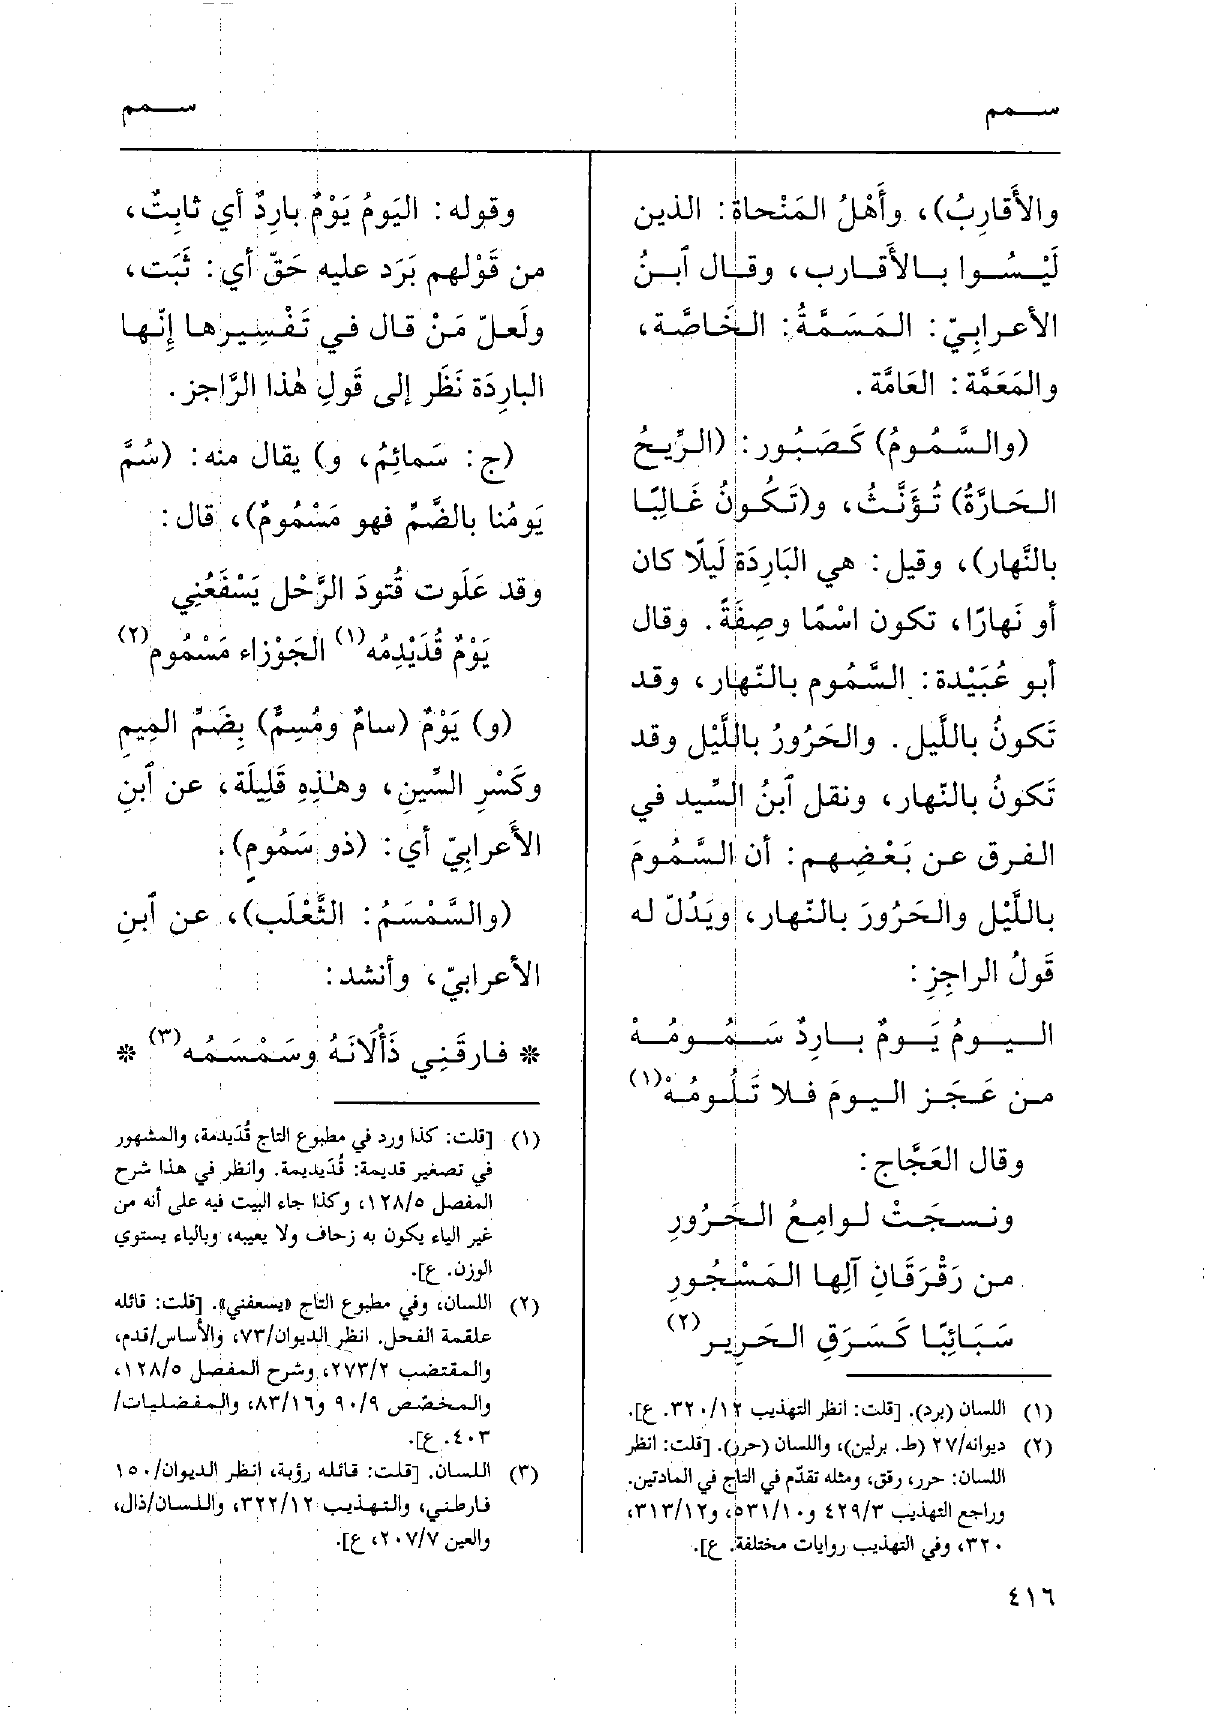 سمم
سمم
والأَقارِبُ)، وأَهْلُ المَنْحاة: الذين
لَيْسُوا بالأَقارب، وقال ٱبنُ
الأعرابِيّ: المَسَمَّةُ: الخَاصَّة،
والمَعَمَّة: العَامَّة.
(والسَّمُومُ) كَصَبُور: (الرِّيحُ
الحَارَّةُ) تُؤَنَّثُ، و(تَكُونُ غَالِبًا
بالنَّهار)، وقيل: هي البَارِدَة لَيلًا كان
أو نَهارًا، تكون اسْمًا وصِفَةً. وقال
أبو عُبَيْدة: السَّمُوم بالنّهار، وقد
تَكونُ باللَّيل. والحَرُورُ باللَّيْل وقد
تَكونُ بالنّهار، ونقل ٱبنُ السِّيد في
الفرق عن بَعْضِهم: أن السَّمُومَ
باللَّيْل والحَرُورَ بالنّهار، ويَدُلّ له
قَولُ الراجِزِ:
اليومُ يَومٌ بارِدٌ سَمُومُهْ
من عَجَز اليومَ فلا تَلُومُهْ(١)
وقال العَجَّاج:
ونسجَتْ لوامِعُ الحَرُورِ
من رَقْرَقَانِ آلِها المَسْجُورِ
سَبَائِبًا كَسَرَقِ الحَرِير(٢)
(١) اللسان (برد). [قلت: انظر التهذيب ٣٢٠/١٢. ع].
(٢) ديوانه/٢٧ (ط. برلين)، واللسان (حرر). [قلت: انظر
اللسان: حرر، رقق، ومثله تقدّم في التاج في المادتين.
وراجع التهذيب ٤٢٩/٣ و٥٣١/١٠، و٣١٣/١٢،
٣٢٠، وفي التهذيب روايات مختلفة. ع].
وقوله: اليَومُ يَوْمٌ بارِدٌ أي ثابِتٌ،
من قَوْلهم بَرَد عليه حَقّ أي: ثَبَت،
ولَعلّ مَنْ قال في تَفْسِيرها إنّها
البارِدَة نَظَر إلى قَولِ هٰذا الرَّاجز.
(ج: سَمائِمُ، و) يقال منه: (سُمَّ
يَومُنا بالضَّمِّ فهو مَسْمُومٌ)، قال:
وقد عَلَوت قُتودَ الرَّحْل يَسْفَعُنِي
يَوْمٌ قُدَيْدِمُه(١) الجَوْزاء مَسْمُوم(٢)
(و) يَوْمٌ (سامٌ ومُسِمٌّ) بِضَمِّ المِيمِ
وكَسْرِ السِّينِ، وهٰذِهِ قَلِيلَة، عن ٱبنِ
الأَعرابِيّ أي: (ذو سَمُومٍ).
(والسَّمْسَمُ: الثَّعْلَب)، عن ٱبنِ
الأعرابيّ، وأنشد:
* فارقَنِي ذَأْلَانَهُ وسَمْسَمُه(٣) *
(١) [قلت: كذا ورد في مطبوع التاج قُدَيدمة، والمشهور
في تصغير قديمة: قُدَيديمة. وانظر في هذا شرح
المفصل ١٢٨/٥، وكذا جاء البيت فيه على أنه من
غير الياء يكون به زحاف ولا يعيبه، وبالياء يستوي
الوزن. ع].
(٢) اللسان، وفي مطبوع التاج «يسعفني». [قلت: قائله
علقمة الفحل. انظر الديوان/٧٣، والأساس/قدم،
والمقتضب ٢٧٣/٢، وشرح المفصل ١٢٨/٥،
والمخصّص ٩٠/٩ و٨٣/١٦، والمفضليات/
٤٠٣. ع].
(٣) اللسان. [قلت: قائله رؤبة، انظر الديوان/١٥٠
فارطني، والتهذيب ٣٢٢/١٢، واللسان/ذال،
والعين ٢٠٧/٧، ع].
٤١٦